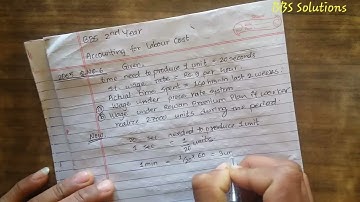 BBS Solutions
BBS 2nd Year
Accounting for Labour Cost
Given,
time need to produce 1 unit = 20 seconds
st. wage rate = Rs 9 per hour
Actual time spent = 160 hrs in last 2 weeks.
① Wage under piece rate system
② Wage under Rowan Premium Plan if worker
realize 27000 units during the period
Now
20 sec needed to produce 1 unit
1 sec = 1/20 units
1 min = 1/20 x 60 = 3 un